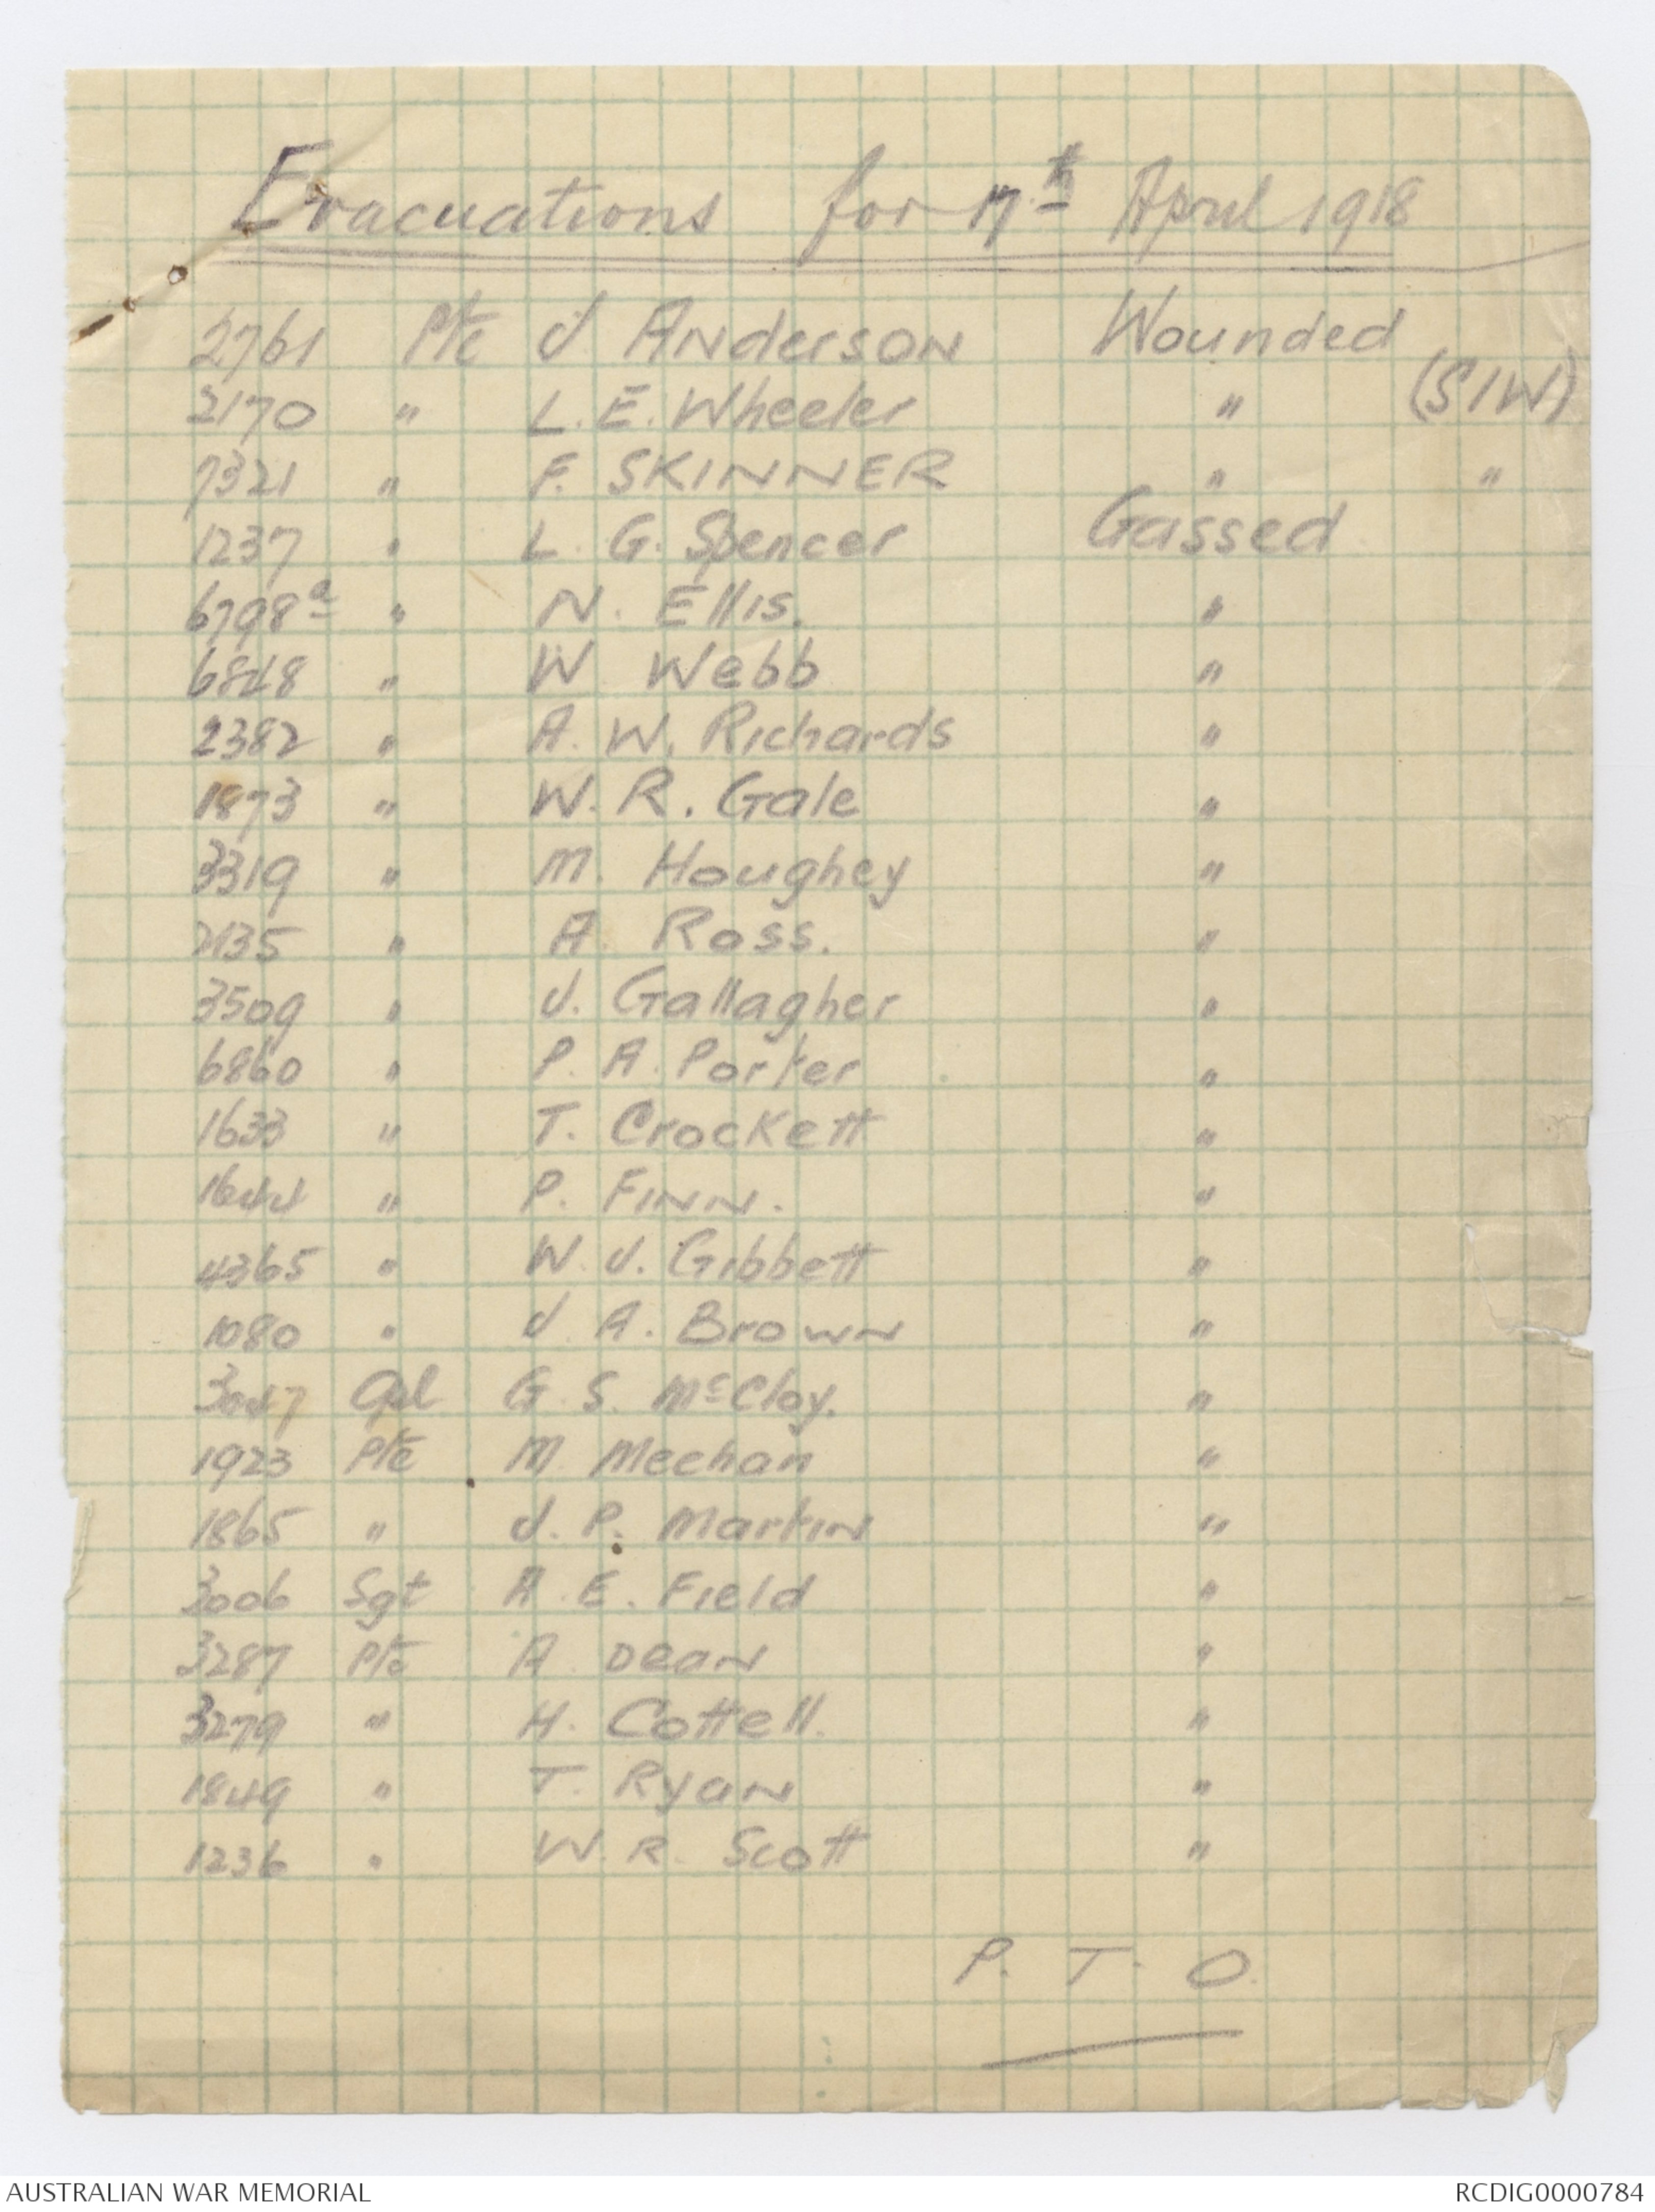 Evacuations for 17th April 1918
2761 Pte J Anderson Wounded
2170 " L. E. Wheeler " (SIW)
7321 " F. SKINNER " "
1237 " L. G. Spencer Gassed
6798a " N. Ellis. "
6848 " W Webb "
2382 " A. W. Richards "
1873 " W. R. Gale "
3319 " M. Houghey "
2135 " A. Ross. "
3509 " J. Gallagher "
6860 " P. A. Porter "
1633 " T. Crockett "
1644 " P. FINN. "
4365 " W. J. Gibbett "
1080 " J. A. Brown "
3047 Cpl G. S. McCloy. "
1923 Pte M. Meehan "
1865 " J. P. Martin "
3006 Sgt A. E. Field "
3287 Pte A. Dean "
3279 " H. Cottell. "
1849 " T. Ryan "
1236 " W. R. Scott "
P. T. O.
AUSTRALIAN WAR MEMORIAL RCDIG0000784